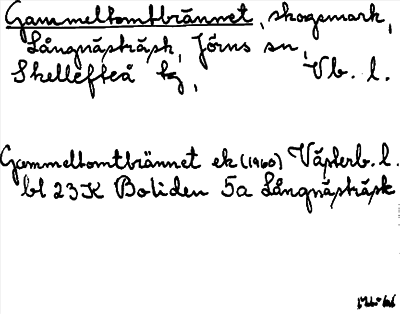 Gammeltomtbrännet, skogsmark,
Långnästräsk, Jörns sn,
Skellefteå kg, Vb. l.
Gammeltomtbrännet ek (1960) Västerb. l.
bl 23K Boliden 5a Långnästräsk